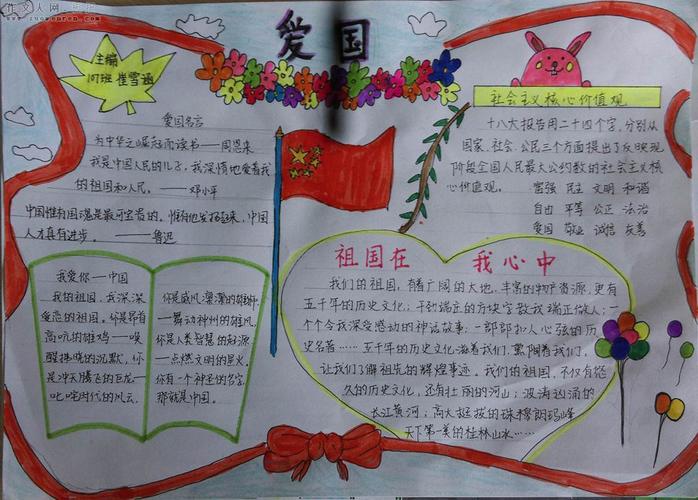 作文人网
www.zuowenren.com
爱国
主编
107班 崔雪涵
爱国名言
为中华之崛起而读书——周恩来
我是中国人民的儿子，我深情地爱着我
的祖国和人民。 ——邓小平
中国惟有国魂是最可宝贵的。惟有他发扬起来，中国
人才真有进步。——鲁迅
我爱你——中国
我的祖国，我深深
爱恋的祖国。你是昂首
高吭的雄鸡——唤
醒拂晓的沉默，你
是冲天腾飞的巨龙——
叱咤时代的风云，
你是威风凛凛的雄狮
——舞动神州的雄风，
你是人类智慧的起源
——点燃文明的星火。
你有一个神圣的名字，
那就是中国。
社会主义核心价值观
十八大报告用二十四个字，分别从
国家、社会、公民三个方面提出了反映现
阶段全国人民最大公约数的社会主义核
心价值观。 富强 民主 文明 和谐
自由 平等 公正 法治
爱国 敬业 诚信 友善
祖国在 我心中
我们的祖国，有着广阔的大地，丰富的物产资源，更有
五千年的历史文化；干劲端立的方块字教我端正做人；一
个个令我深受感动的神话故事；一部部扣人心弦的历
史名著……五千年的历史文化滋养我们，熏陶着我们，
让我们了解祖先的辉煌事迹。我们的祖国，不仅有悠
久的历史文化，还有壮丽的河山；波涛汹涌的
长江黄河；高大挺拔的珠穆朗玛峰
天下第一美的桂林山水……